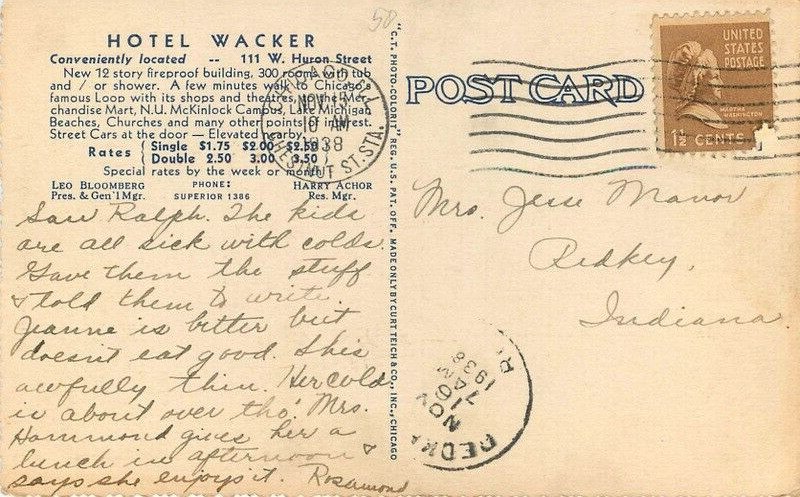 58
HOTEL WACKER
Conveniently located -- 111 W. Huron Street
New 12 story fireproof building, 300 rooms with tub
and / or shower. A few minutes walk to Chicago's
famous Loop with its shops and theatres, to the Mer-
chandise Mart, N.U. McKinlock Campus, Lake Michigan
Beaches, Churches and many other points of interest.
Street Cars at the door — Elevated nearby.
Rates { Single $1.75 $2.00 $2.50 }
Double 2.50 3.00 3.50
Special rates by the week or month
LEO BLOOMBERG
Pres. & Gen'l Mgr.
PHONE:
SUPERIOR 1386
HARRY ACHOR
Res. Mgr.
CHICAGO, ILL.
NOV
10 AM
1938
CHESTNUT ST. STA.
Saw Ralph. The kids
are all sick with colds.
Gave them the stuff
& told them to write.
Jeanne is better but
doesn't eat good. She's
awfully thin. Her cold
is about over tho'. Mrs.
Hammond gives her a
lunch in afternoon &
says she enjoys it. Rosamond
"C.T. PHOTO-COLORIT" REG. U.S. PAT. OFF. MADE ONLY BY CURT TEICH & CO., INC., CHICAGO
POST CARD
UNITED
STATES
POSTAGE
WASHINGTON
1½ CENTS
Mrs. Jesse Manor
Redkey,
Indiana
NOV
7
AM
1938